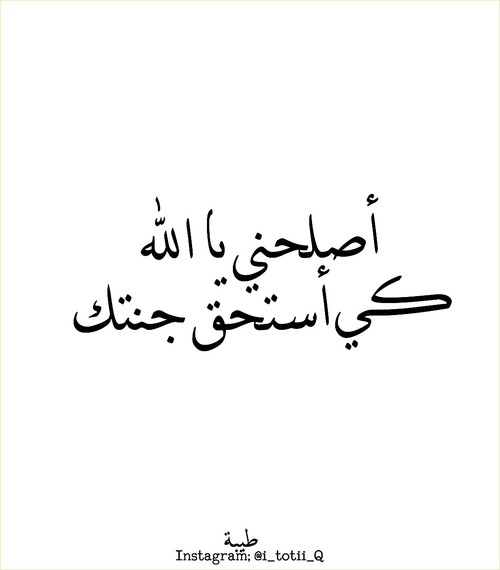 أصلحني يا الله
كي أستحق جنتك
طيبة
Instagram; @i_totii_Q